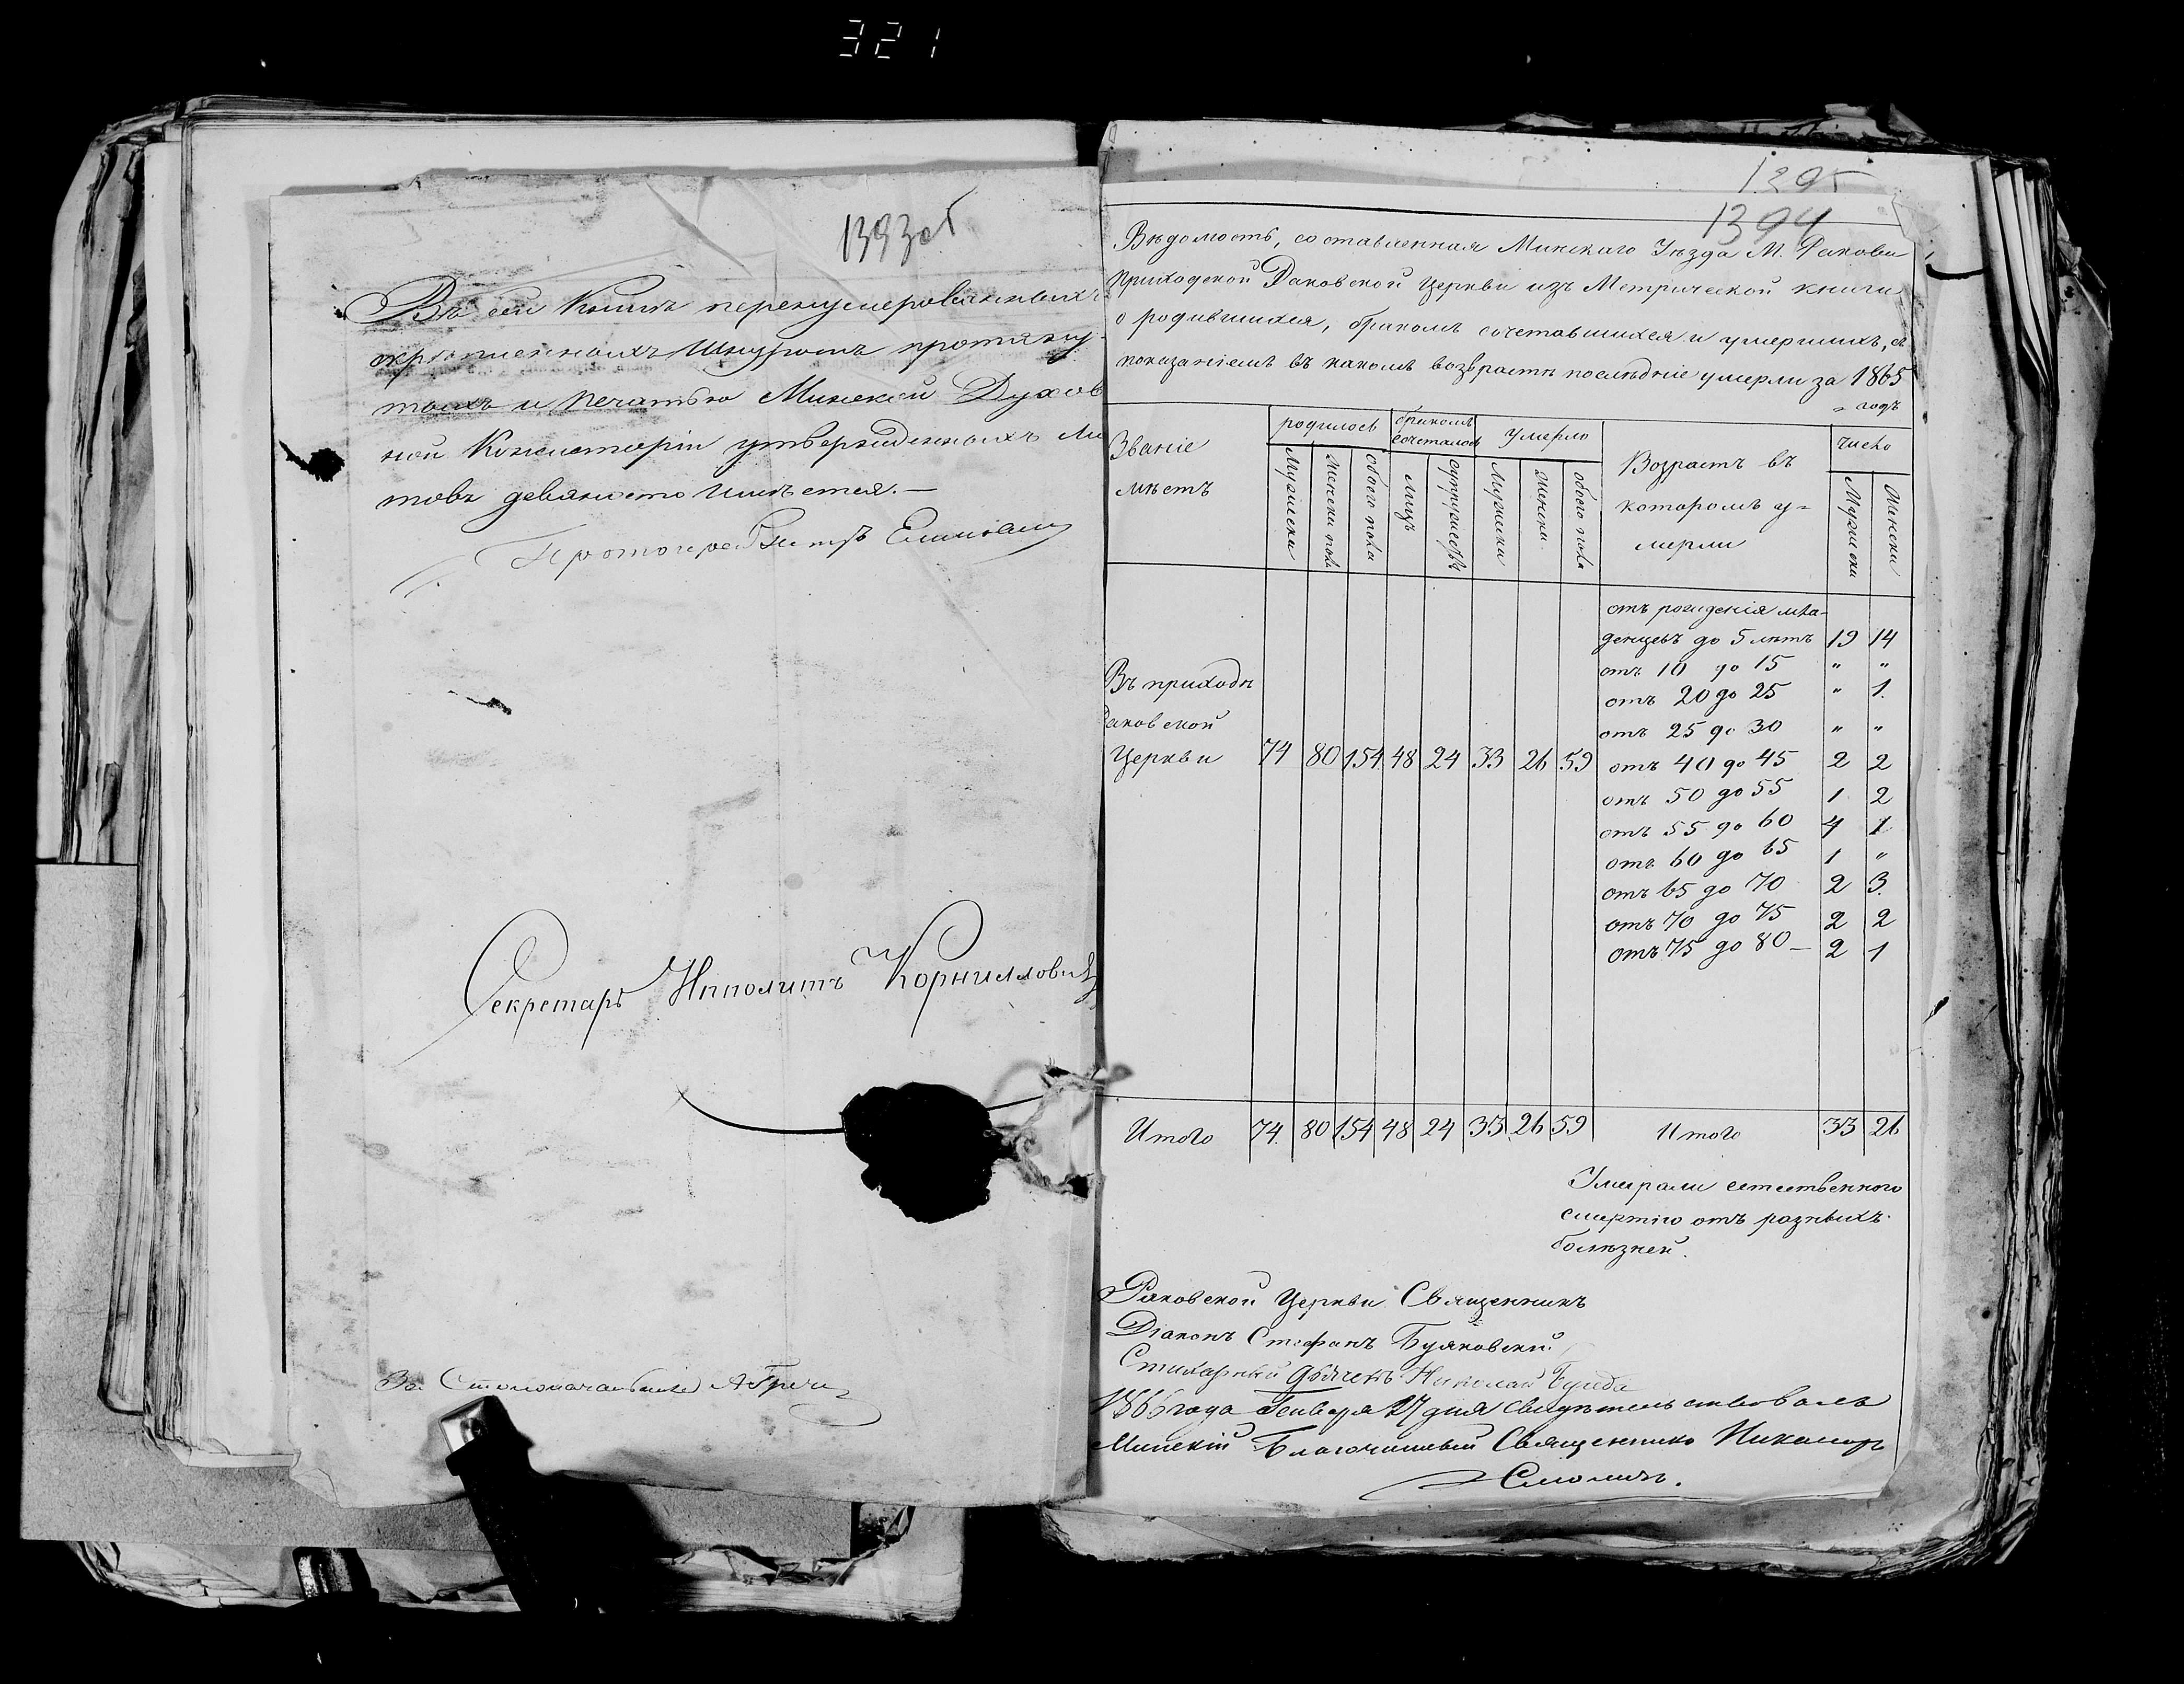 321
1393об
Въ сей Книгѣ перенумерованныхъ
скрѣпленныхъ Шнуромъ протяну-
тыхъ и печатью Минской Духов
ной Консисторіи утвержденныхъ ли
товъ девяносто имѣется.—
Секретарь Ипполитъ Корниллович
За Столоначальника
1395
1394
Вѣдомость, составленная Минскаго Уѣзда М. Ракова
приходской Раковской Церкви изъ Метрической книги
о родившихся, бракомъ сочетавшихся и умершихъ, съ
показаніемъ въ какомъ возврастѣ послѣдніе умерли за 1865
годъ
Званіе мѣстъ
родилось бракомъ сочеталось умерло
Возрастъ въ которомъ у=мерли
число
Мужески Женски пола обоего пола лицъ супружествъ Мужески женски обоего пола Мужески Женски
отъ рожденія мла-
денцевъ до 5 лѣтъ 19 14
отъ 10 до 15 " "
отъ 20 до 25 " 1.
отъ 25 до 30 " "
Въ приходѣ
Раковской
Церкви 74 80 154 48 24 33 26 59 отъ 40 до 45 2 2
отъ 50 до 55 1 2
отъ 55 до 60 4 1
отъ 60 до 65 1 "
отъ 65 до 70 2 3.
отъ 70 до 75 2 2
отъ 75 до 80 — 2 1
Итого 74. 80 154 48 24 33 26 59 Итого 33 26
Умерали естественного
смертію отъ разныхъ
болѣзней.
Раковской Церкви Священникъ
Діаконъ Стефанъ Буяковскій
Стихарный дьячекъ Николай
1866 года Генваря 27 дня свидѣтельствовалъ
Минскій Благочинный Священникъ Никаноръ
Смоличъ.